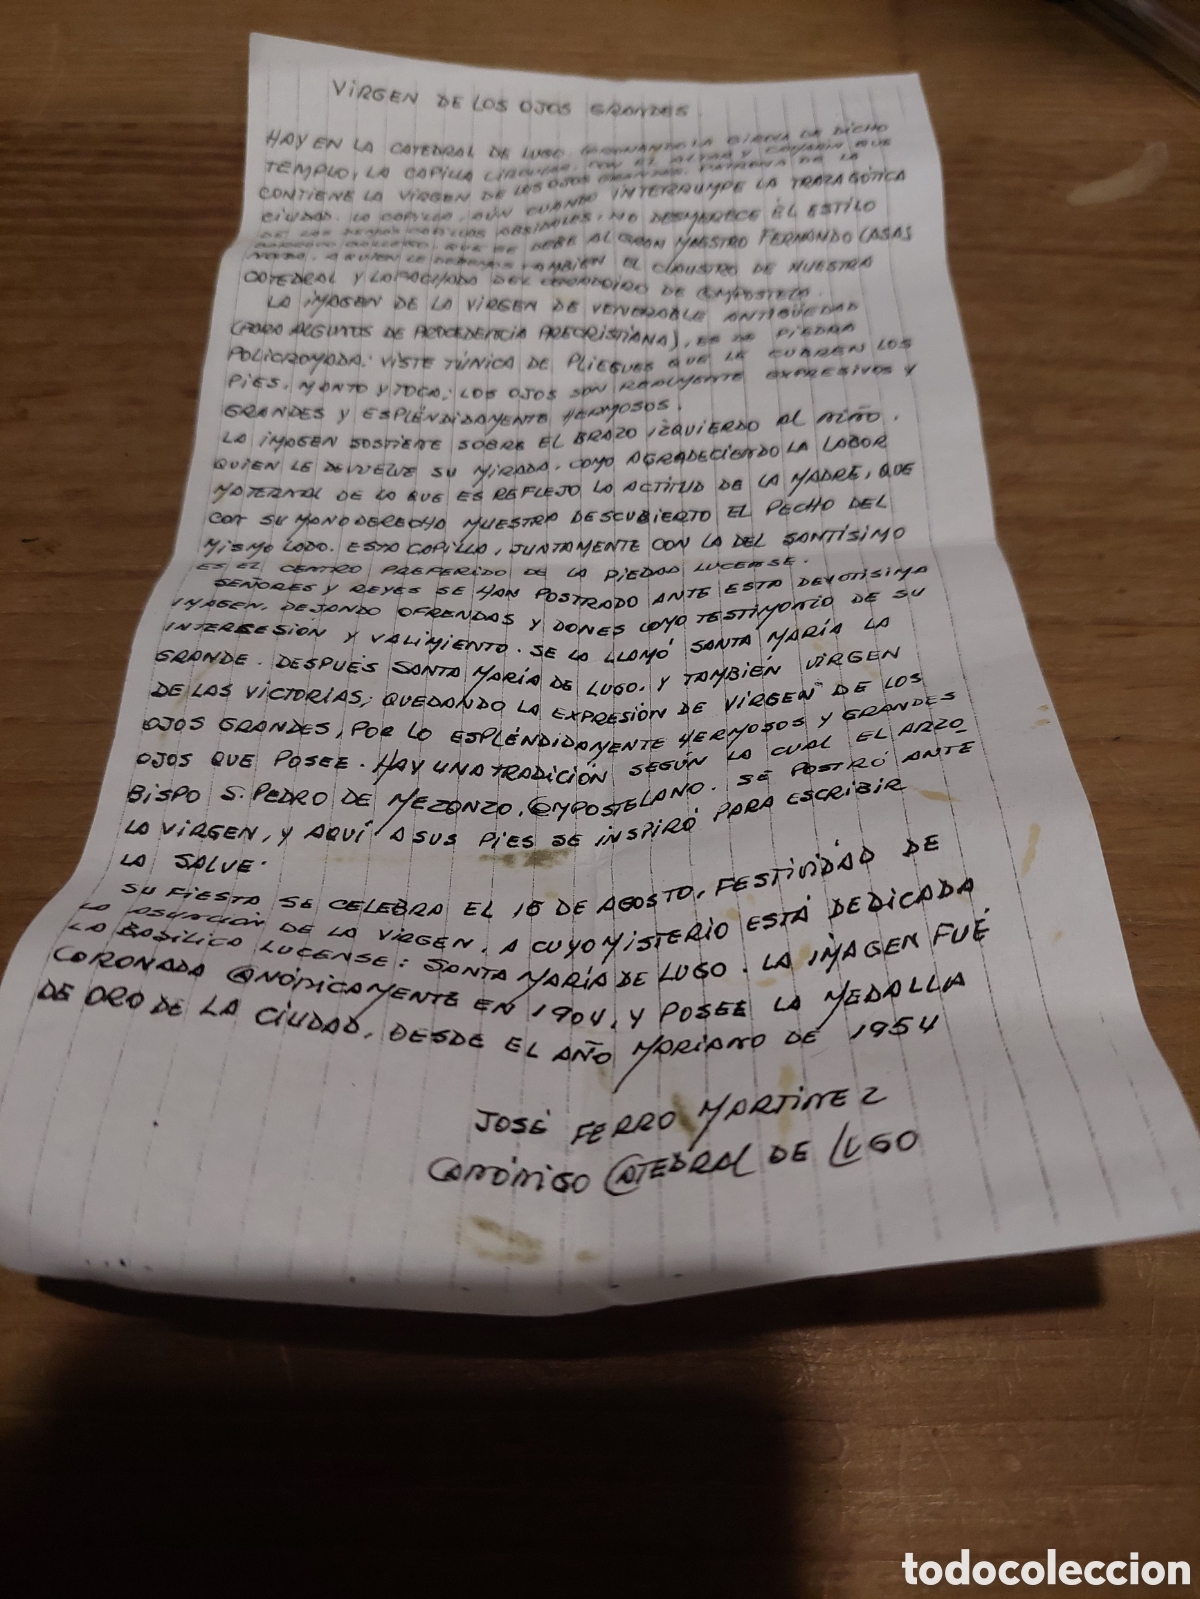 VIRGEN DE LOS OJOS GRANDES.
HAY EN LA CATEDRAL DE LUGO, CORONANDO LA GIROLA DE DICHO
TEMPLO, LA CAPILLA CIRCULAR, CON EL ALTAR Y CAMARÍN QUE
CONTIENE LA VIRGEN DE LOS OJOS GRANDES, PATRONA DE LA
CIUDAD. LA CAPILLA, AÚN CUANDO INTERRUMPE LA TRAZA GÓTICA
DE LAS DEMÁS CAPILLAS ABSIDALES, NO DESMERECE EL ESTILO
BARROCO GALLEGO, QUE SE DEBE AL GRAN MAESTRO FERNANDO CASAS
NOVOA, A QUIEN LE DEBEMOS TAMBIÉN EL CLAUSTRO DE NUESTRA
CATEDRAL Y LA FACHADA DEL OBRADOIRO DE COMPOSTELA.
LA IMAGEN DE LA VIRGEN DE VENERABLE ANTIGÜEDAD
(PARA ALGUNOS DE PROCEDENCIA PRECRISTIANA), ES DE PIEDRA
POLICROMADA: VISTE TÚNICA DE PLIEGUES QUE LE CUBREN LOS
PIES, MANTO Y TOCA; LOS OJOS SON REALMENTE EXPRESIVOS Y
GRANDES Y ESPLÉNDIDAMENTE HERMOSOS.
LA IMAGEN SOSTIENE SOBRE EL BRAZO IZQUIERDO AL NIÑO,
QUIEN LE DEVUELVE SU MIRADA, COMO AGRADECIENDO LA LABOR
MATERNAL DE LA QUE ES REFLEJO LA ACTITUD DE LA MADRE, QUE
CON SU MANO DERECHA MUESTRA DESCUBIERTO EL PECHO DEL
MISMO LADO. ESTA CAPILLA, JUNTAMENTE CON LA DEL SANTÍSIMO
ES EL CENTRO PREFERIDO DE LA PIEDAD LUCENSE.
SEÑORES Y REYES SE HAN POSTRADO ANTE ESTA DEVOTISIMA
IMAGEN, DEJANDO OFRENDAS Y DONES COMO TESTIMONIO DE SU
INTERSESIÓN Y VALIMIENTO. SE LA LLAMÓ SANTA MARÍA LA
GRANDE. DESPUÉS SANTA MARÍA DE LUGO, Y TAMBIÉN VIRGEN
DE LAS VICTORIAS; QUEDANDO LA EXPRESIÓN DE VIRGEN DE LOS
OJOS GRANDES, POR LO ESPLÉNDIDAMENTE HERMOSOS Y GRANDES
OJOS QUE POSEE. HAY UNA TRADICIÓN SEGÚN LA CUAL EL ARZO_
BISPO S. PEDRO DE MEZONZO, COMPOSTELANO. SE POSTRÓ ANTE
LA VIRGEN, Y AQUÍ A SUS PIES SE INSPIRÓ PARA ESCRIBIR
LA SALVE.
SU FIESTA SE CELEBRA EL 15 DE AGOSTO, FESTIVIDAD DE
LA ASUNCIÓN DE LA VIRGEN, A CUYO MISTERIO ESTÁ DEDICADA
LA BASÍLICA LUCENSE: SANTA MARÍA DE LUGO. LA IMAGEN FUÉ
CORONADA CANÓNICAMENTE EN 1904, Y POSEE LA MEDALLA
DE ORO DE LA CIUDAD, DESDE EL AÑO MARIANO DE 1954
JOSÉ FERRO MARTINEZ
CANÓNIGO CATEDRAL DE LUGO
todocoleccion